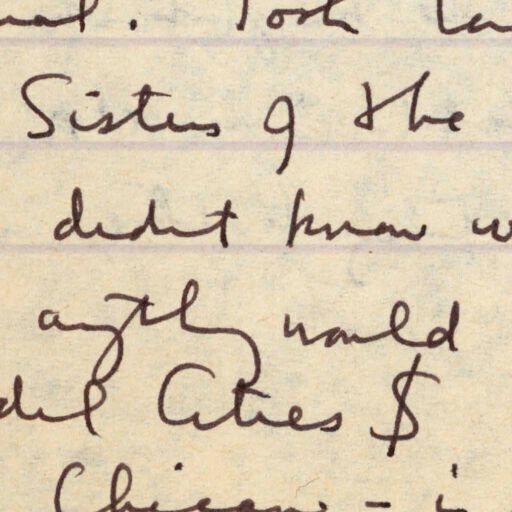 Took
Sisters of the
didn't know
anything would
Cities $
Chicago - i